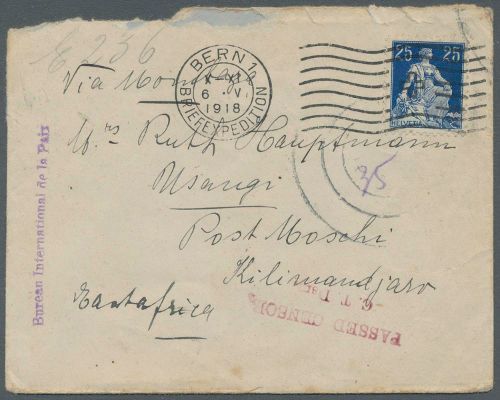 E 236
Via
BERN 1
X-XI
6 V.
1918
BRIEFEXPEDITION
25 25
HELVETIA
Mrs Ruth Hauptmann
Usangi
35
Post Moschi
Kilimandjaro
Eastafrica
Bureau International de la Paix
PASSED CENSOR